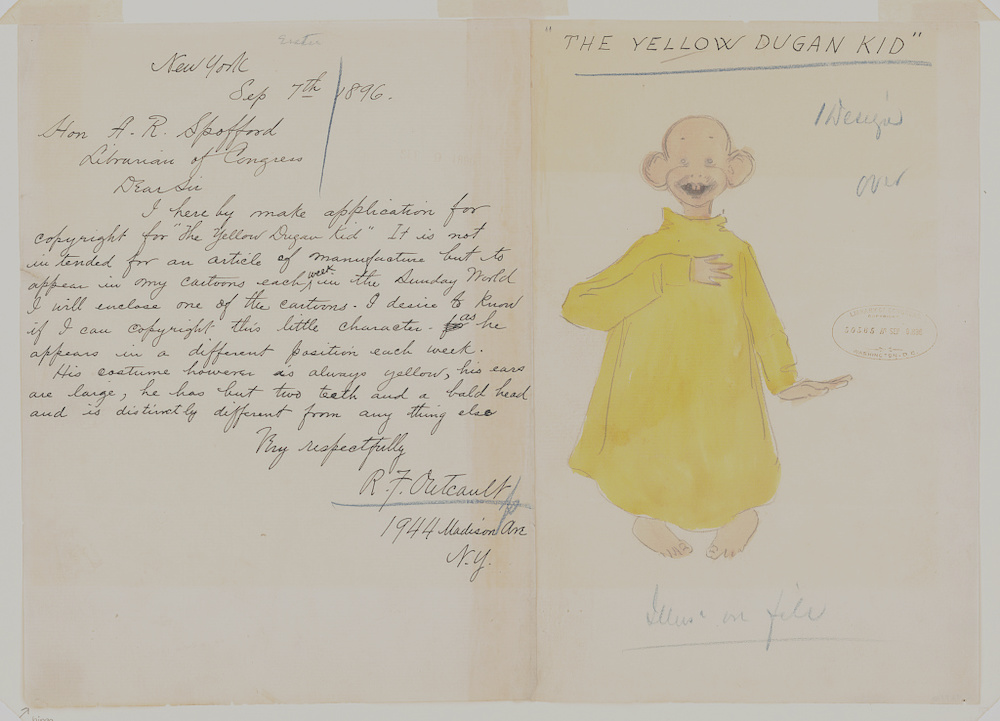 Enter
New York
Sep 7th 1896.
Hon A. R. Spofford
Librarian of Congress
Dear Sir
I here by make application for
copyright for "The Yellow Dugan Kid" It is not
in tended for an article of manufacture but to
appear in my cartoons each week in the Sunday World
I will enclose one of the cartoons. I desire to know
if I can copyright this little character. as he
appears in a different position each week.
His costume however is always yellow, his ears
are large, he has but two teeth and a bald head
and is distinctly different from any thing else
Very respectfully
R. F. Outcault
1944 Madison Ave
N.Y.
"THE YELLOW DUGAN KID"
1 Design
over
WASHINGTON, D.C.
Illus. on file